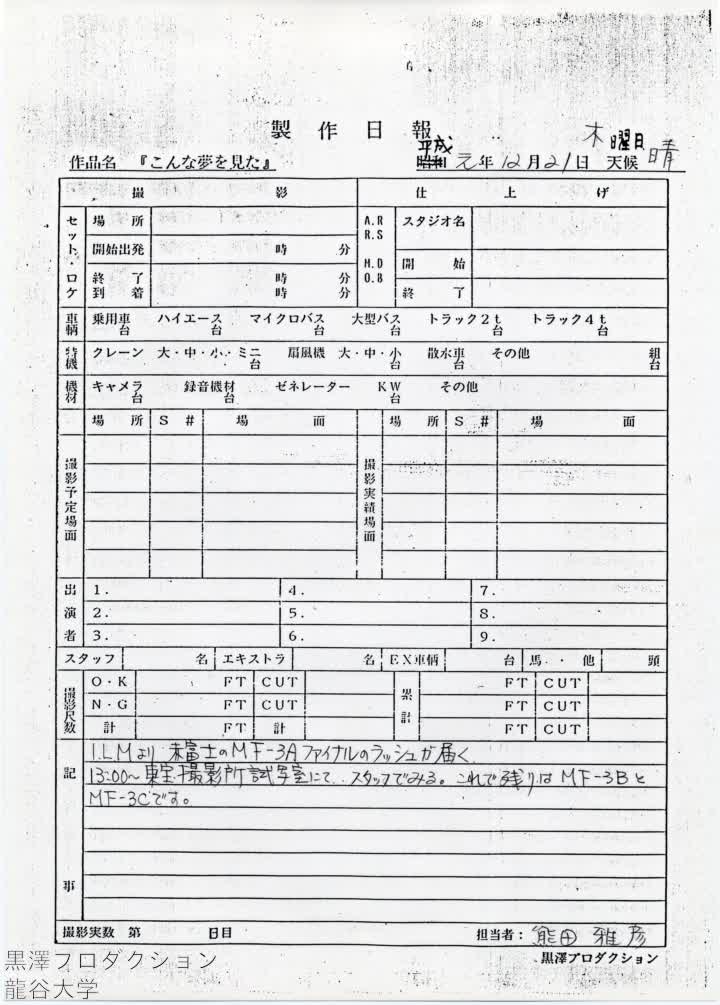 製作日報
木曜日
作品名 『こんな夢を見た』 平成 昭和 元年12月21日 天候 晴
撮 影 仕 上 げ
セット・ロケ 場 所 A.R R.S スタジオ名
開始出発 時 分 M.D O.B 開 始
終 了 時 分 終 了
到 着 時 分
車輌 乗用車 台 ハイエース 台 マイクロバス 台 大型バス 台 トラック2t 台 トラック4t 台
特機 クレーン 大・中・小・ミニ 台 扇風機 大・中・小 台 散水車 台 その他 組 台
機材 キャメラ 台 録音機材 台 ゼネレーター KW 台 その他
場 所 S # 場 面 場 所 S # 場 面
撮影予定場面 撮影実績場面
出演者 1. 4. 7.
2. 5. 8.
3. 6. 9.
スタッフ 名 エキストラ 名 EX車輌 台 馬・他 頭
撮影尺数 O・K FT CUT 累計 FT CUT
N・G FT CUT FT CUT
計 FT 計 FT CUT
記事 I.L.Mより 赤富士のMF-3A ファイナルのラッシュが届く
13:00~ 東宝撮影所試写室にて、スタッフでみる。これで残りはMF-3Bと
MF-3Cです。
撮影実数 第 日目 担当者: 熊田雅彦
黒澤プロダクション
黒澤プロダクション
龍谷大学